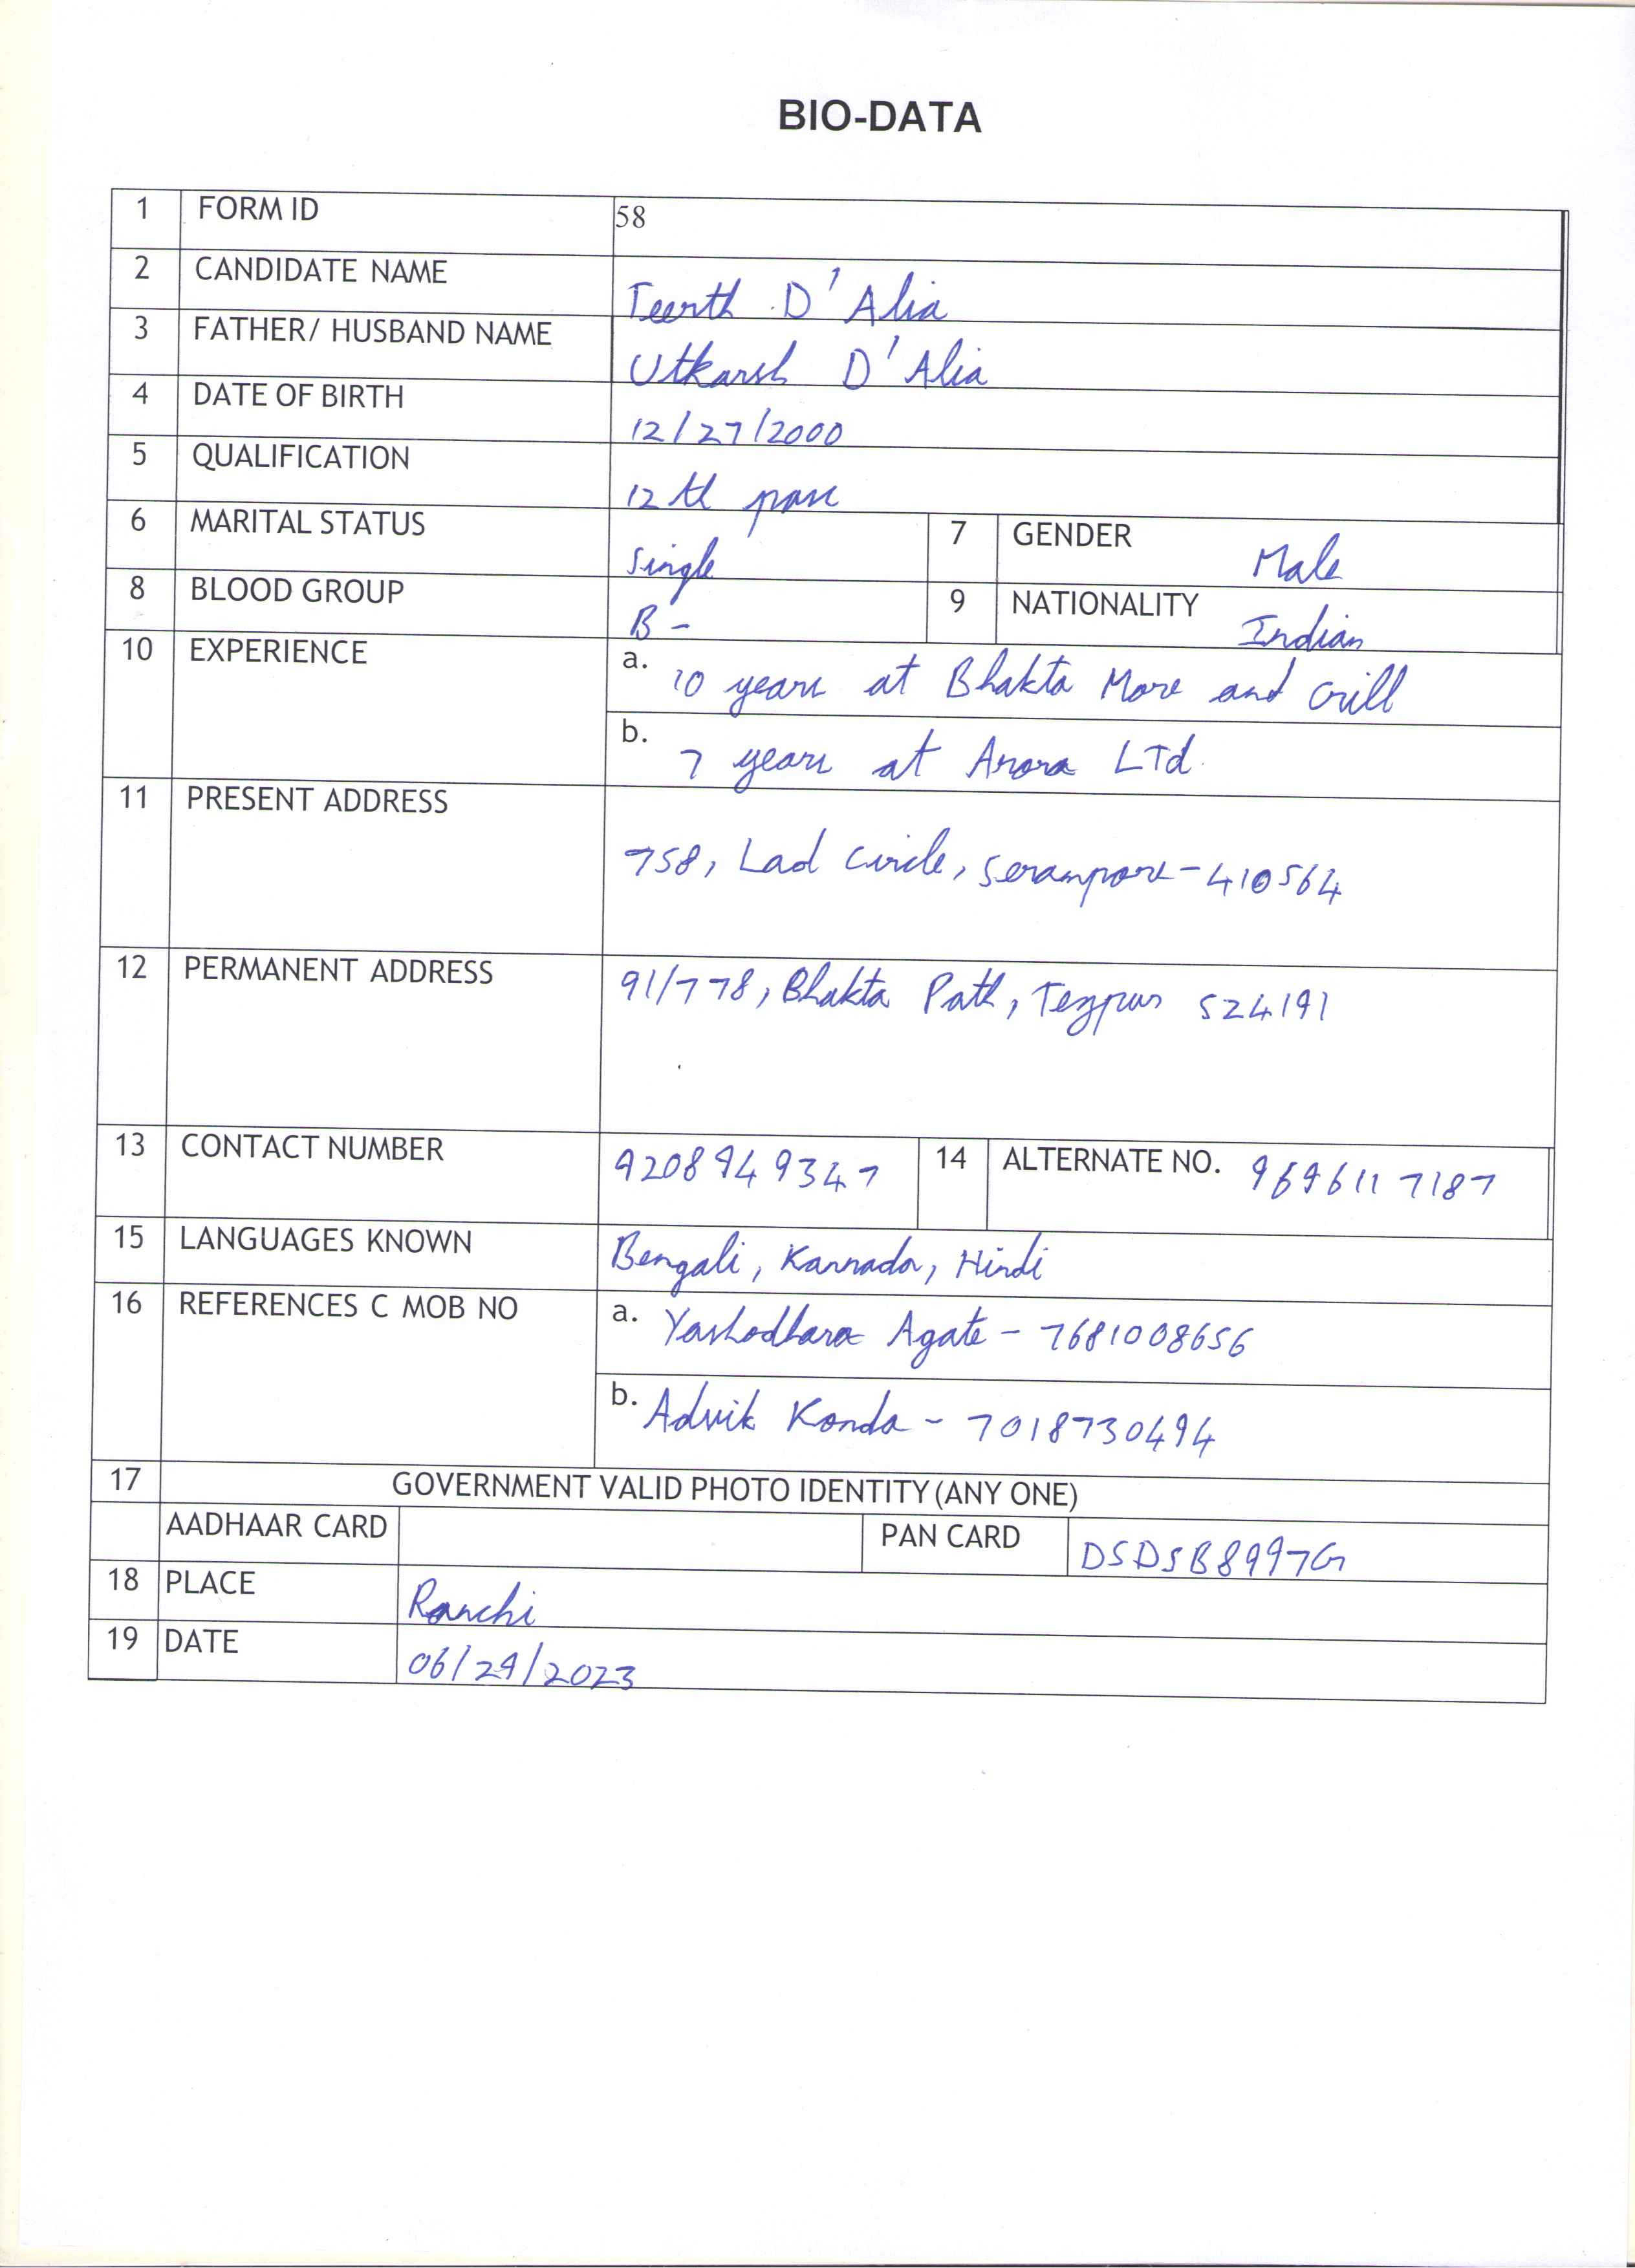 BIO-DATA
1 FORM ID 58
2 CANDIDATE NAME Teerth D'Alia
3 FATHER/ HUSBAND NAME Utkarsh D'Alia
4 DATE OF BIRTH 12/27/2000
5 QUALIFICATION 12th pass
6 MARITAL STATUS Single 7 GENDER Male
8 BLOOD GROUP B- 9 NATIONALITY Indian
10 EXPERIENCE a. 10 years at Bhakta More and Grill
b. 7 years at Arora LTd.
11 PRESENT ADDRESS 758, Lad Circle, Serampore-410564
12 PERMANENT ADDRESS 91/778, Bhakta Path, Tezpur 524191
13 CONTACT NUMBER 9208949347 14 ALTERNATE NO. 9696117187
15 LANGUAGES KNOWN Bengali, Kannada, Hindi
16 REFERENCES C MOB NO a. Yashodhara Agate - 7681008656
b. Advik Konda - 7018730494
17 GOVERNMENT VALID PHOTO IDENTITY (ANY ONE)
AADHAAR CARD PAN CARD DSDSB8997G
18 PLACE Ranchi
19 DATE 06/29/2023